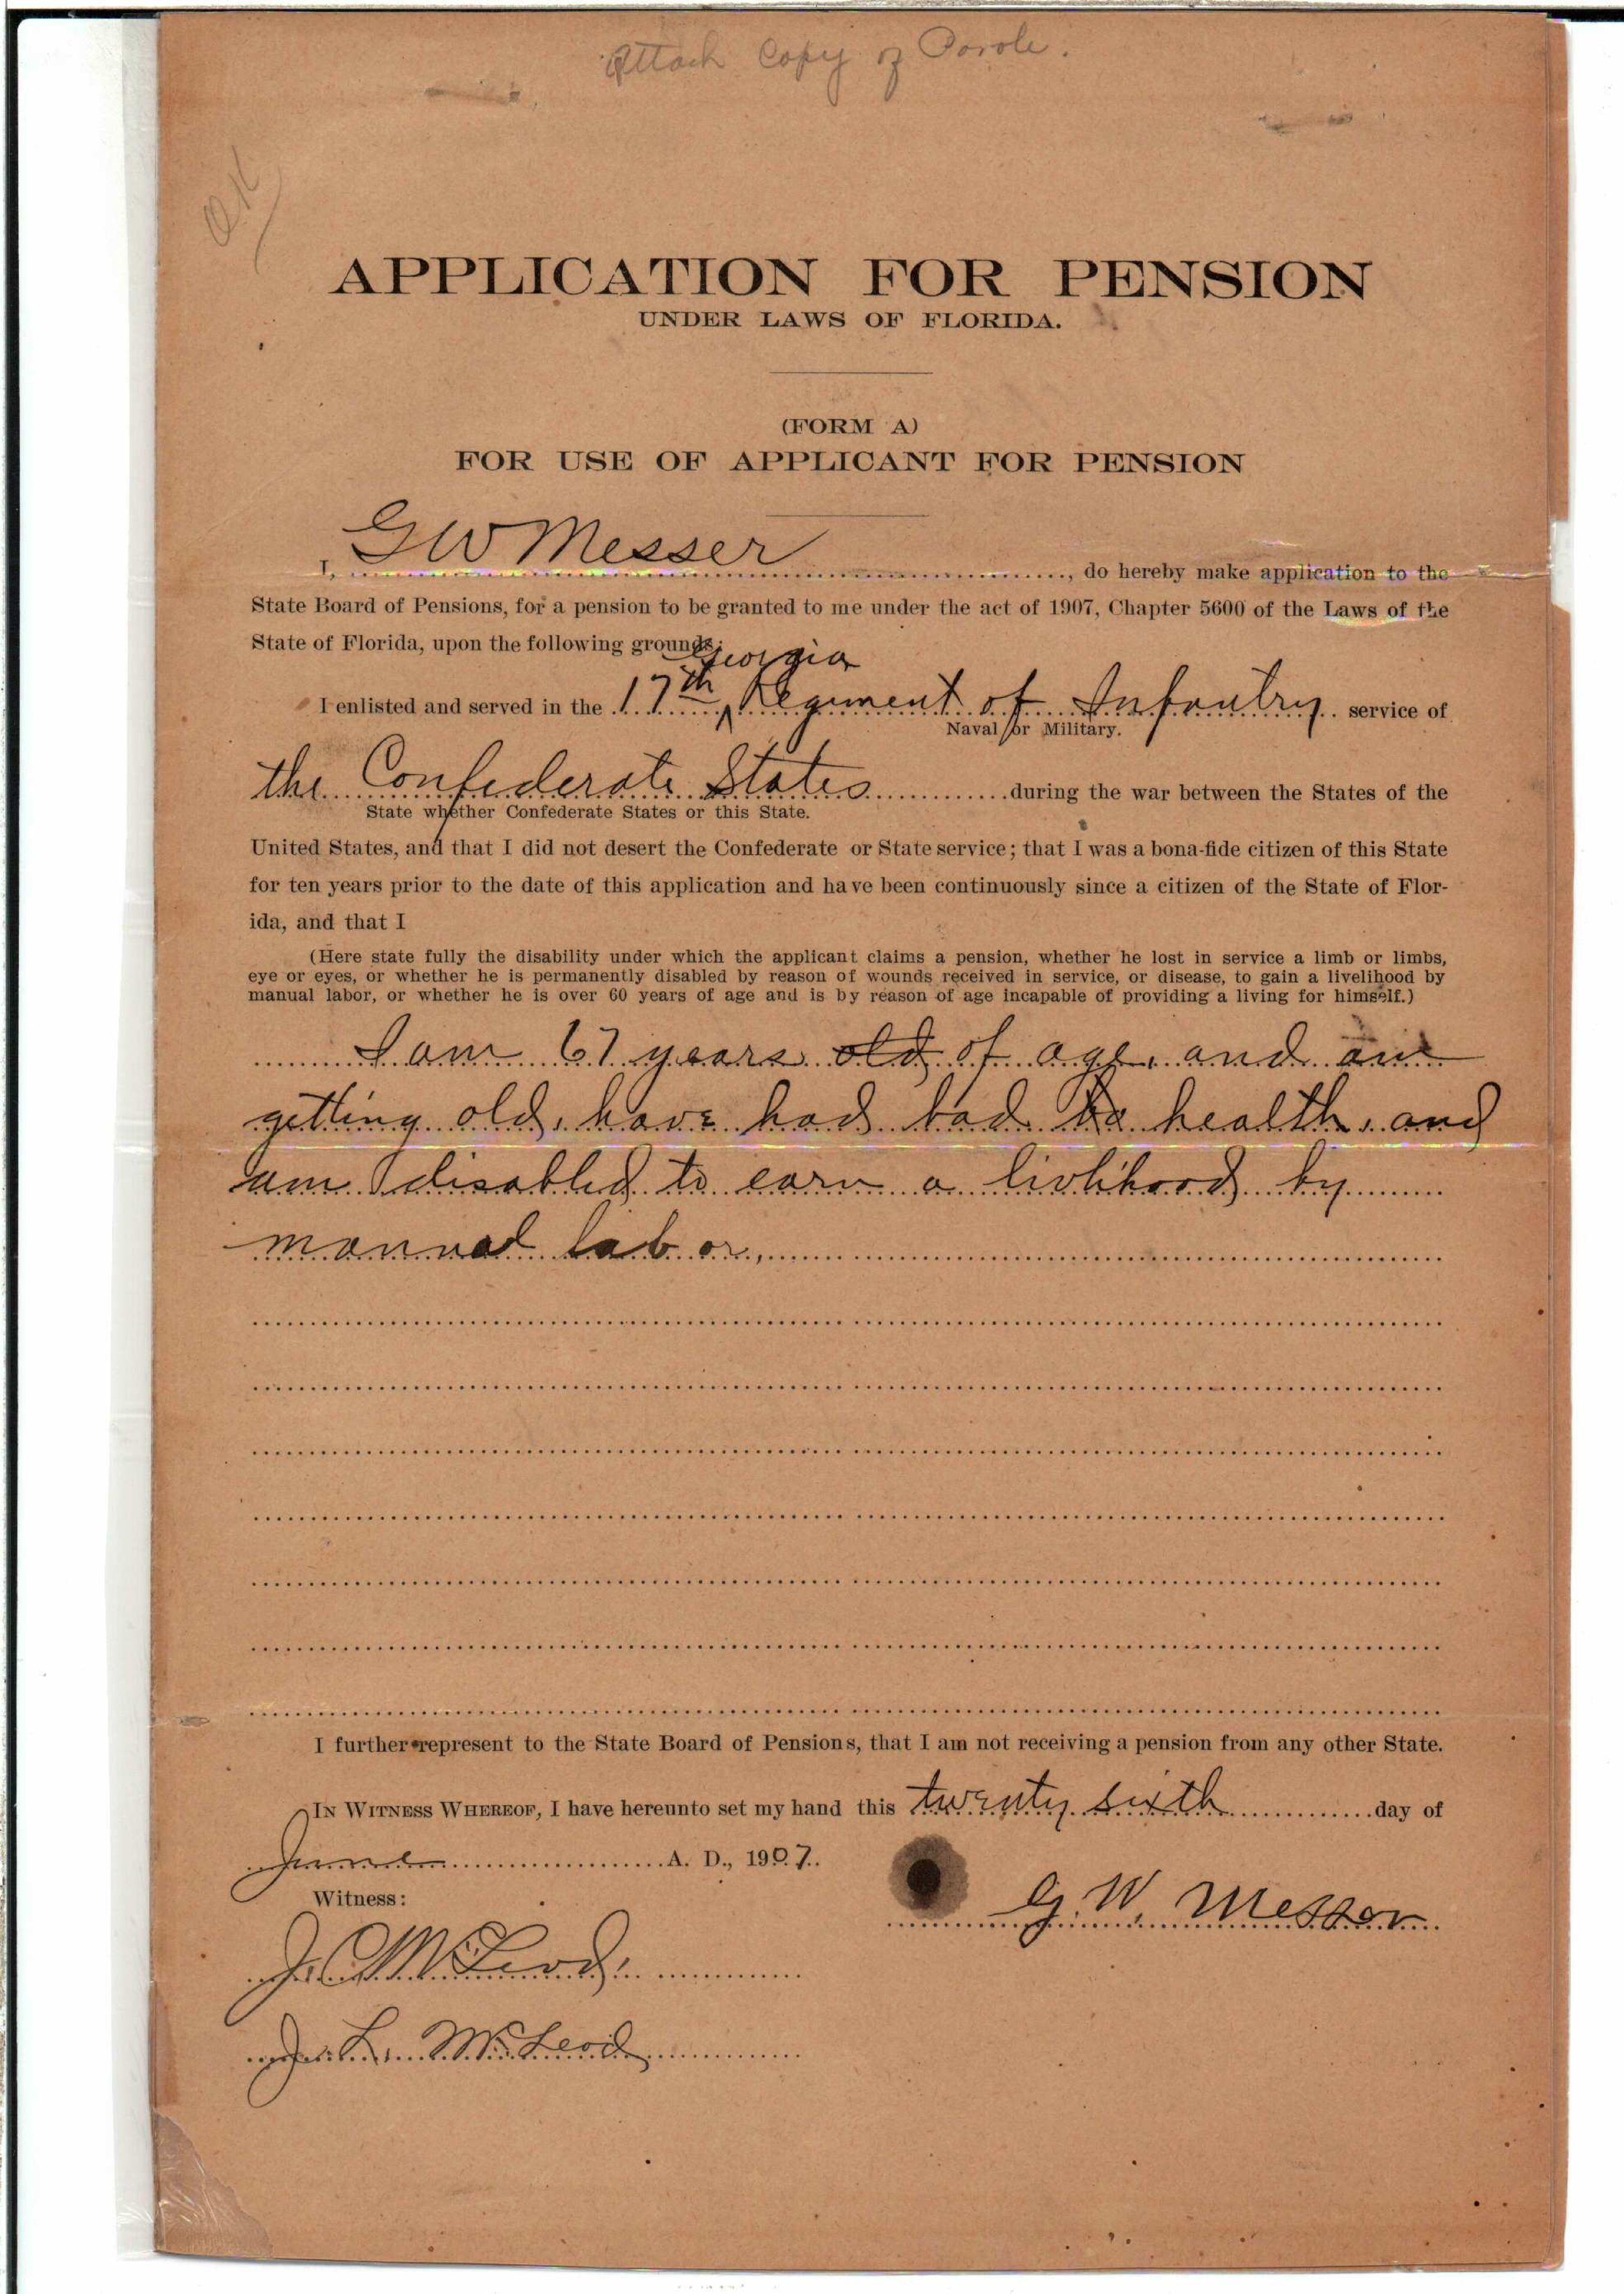 Attach Copy of Parole.
OK
APPLICATION FOR PENSION
UNDER LAWS OF FLORIDA.
(FORM A)
FOR USE OF APPLICANT FOR PENSION
I, G W Messer, do hereby make application to the
State Board of Pensions, for a pension to be granted to me under the act of 1907, Chapter 5600 of the Laws of the
State of Florida, upon the following grounds:
Georgia
I enlisted and served in the 17th Regiment of Infantry service of
Naval or Military.
the Confederate States during the war between the States of the
State whether Confederate States or this State.
United States, and that I did not desert the Confederate or State service; that I was a bona-fide citizen of this State
for ten years prior to the date of this application and have been continuously since a citizen of the State of Flor-
ida, and that I
(Here state fully the disability under which the applicant claims a pension, whether he lost in service a limb or limbs,
eye or eyes, or whether he is permanently disabled by reason of wounds received in service, or disease, to gain a livelihood by
manual labor, or whether he is over 60 years of age and is by reason of age incapable of providing a living for himself.)
I am 67 years old of age, and am
getting old, have had bad he health, and
am disabled to earn a livlihood by
manual labor,
I further represent to the State Board of Pensions, that I am not receiving a pension from any other State.
IN WITNESS WHEREOF, I have hereunto set my hand this twenty sixth day of
June A. D., 1907.
Witness:
G. W. Messer
J. C. McLeod
J. L. McLeod